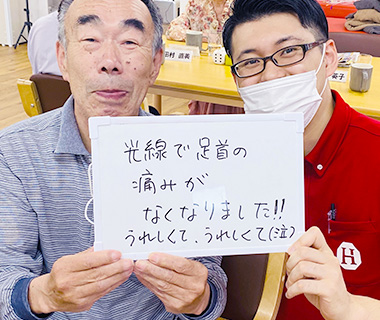 田村 直美
英子
光線で足首の
痛みが
なくなりました!!
うれしくて、うれしくて(泣)
H